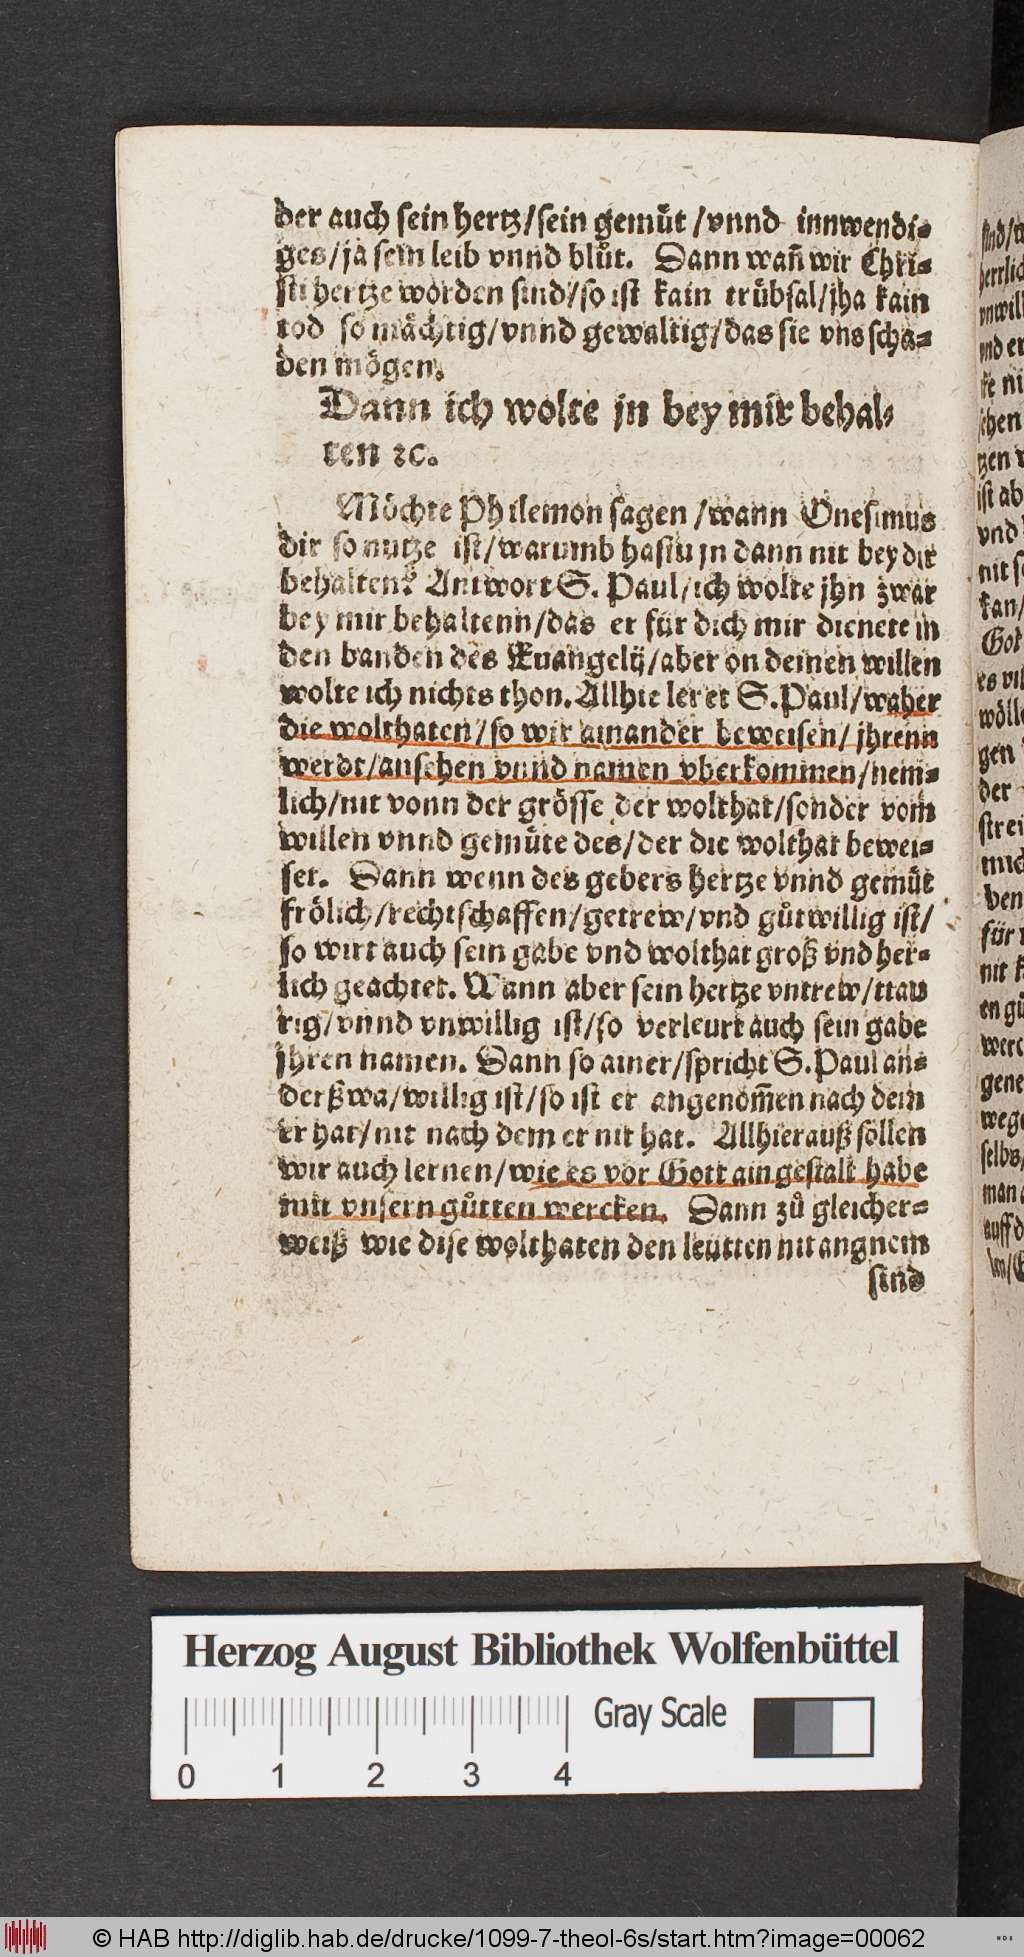 der auch sein hertz/sein gemuͤt/vnnd innwendi-
ges/ja sein leib vnnd bluͦt. Dann wañ wir Chri-
sti hertze worden sind/so ist kain truͤbsal/jha kain
tod so maͤchtig/vnnd gewaltig/das sie vns scha-
den moͤgen.
Dann ich wolte jn bey mir behal-
ten ꝛc.
Moͤchte Philemon sagen/wann Onesimus
dir so nutze ist/warumb hastu jn dann nit bey dir
behalten? Antwort S. Paul/ich wolte jhn zwar
bey mir behaltenn/das er fuͤr dich mir dienete in
den banden des Euangelij/aber on deinen willen
wolte ich nichts thon. Allhie leret S. Paul/waher
die wolthaten/so wir ainander beweisen/jhrenn
werdt/ansehen vnnd namen vberkommen/nem-
lich/nit vonn der groͤsse der wolthat/sonder vom
willen vnnd gemuͤte des/der die wolthat bewei-
set. Dann wenn des gebers hertze vnnd gemuͤt
froͤlich/rechtschaffen/getrew/vnd guͦtwillig ist/
so wirt auch sein gabe vnd wolthat groß vnd her-
lich geachtet. Wann aber sein hertze vntrew/traw
rig/vnnd vnwillig ist/so verleurt auch sein gabe
jhren namen. Dann so ainer/spricht S. Paul an-
derßwa/willig ist/so ist er angenom̃en nach dem
er hat/nit nach dem er nit hat. Allhierauß soͤllen
wir auch lernen/wie es vor Gott ain gestalt habe
mit vnsern guͦtten wercken. Dann zuͦ gleicher-
weiß wie dise wolthaten den leuͤtten nit angnem
sind
Herzog August Bibliothek Wolfenbüttel
Gray Scale
0 1 2 3 4
© HAB http://diglib.hab.de/drucke/1099-7-theol-6s/start.htm?image=00062